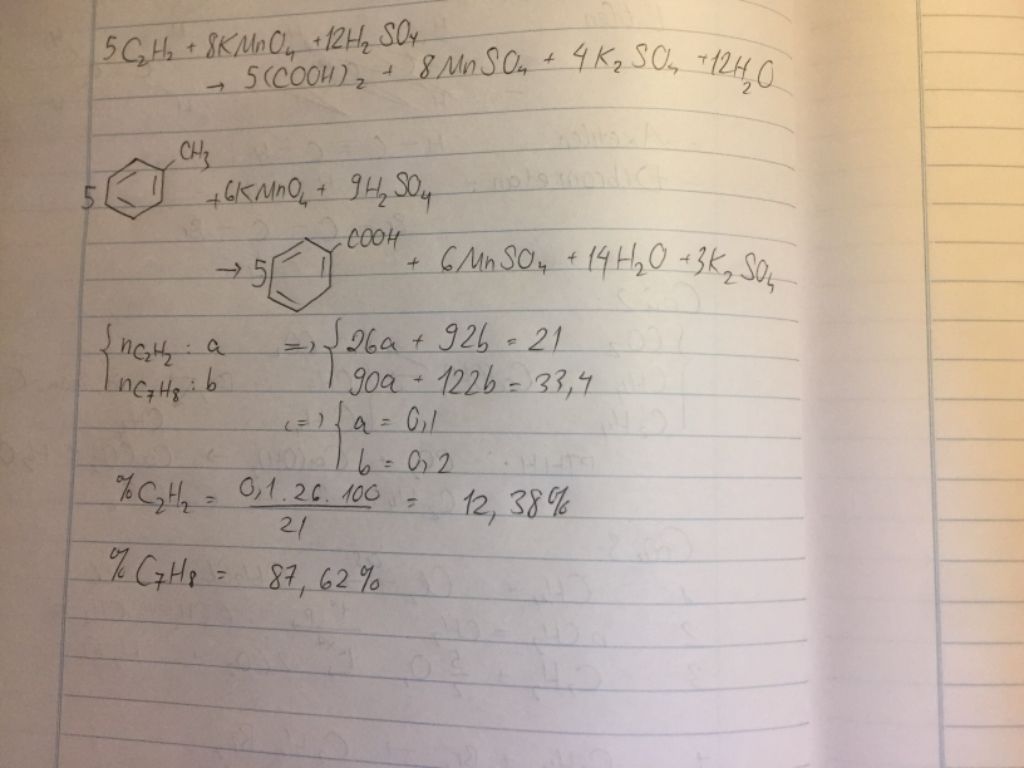 5C₂H₂ + 8KMnO₄ + 12H₂SO₄
→ 5(COOH)₂ + 8MnSO₄ + 4K₂SO₄ + 12H₂O
CH₃
5 + 6KMnO₄ + 9H₂SO₄
COOH
→ 5 + 6MnSO₄ + 14H₂O + 3K₂SO₄
{ nC₂H₂ : a => { 26a + 92b = 21
nC₇H₈ : b 90a + 122b = 33,4
(=) { a = 0,1
b = 0,2
%C₂H₂ = 0,1.26.100 / 21 = 12,38%
%C₇H₈ = 87,62%